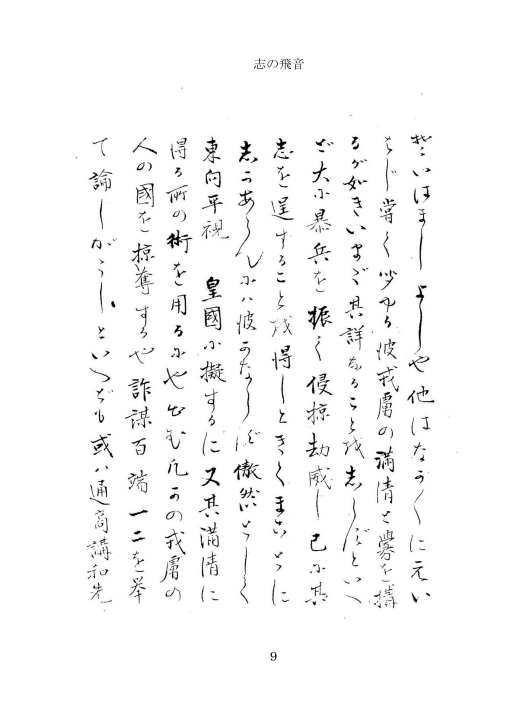 志の飛音
いはましよしや他はなか〱に元い
はじ嘗て少ゆる彼戎虜の満清と釁を搆
るが如きいまだ其詳なること越志らずといへ
ど大に暴兵を振て侵掠劫威し已に其
志を逞すること越得しときくまことに
志かあらんには彼かならず傲然として
東向平視 皇國に擬するに又其満清に
得る所の術を用るにや出む凡かの戎虜の
人の國を掠奪するや詐謀百端一二を举
て論しがたしといへども或ハ通商講和先
9